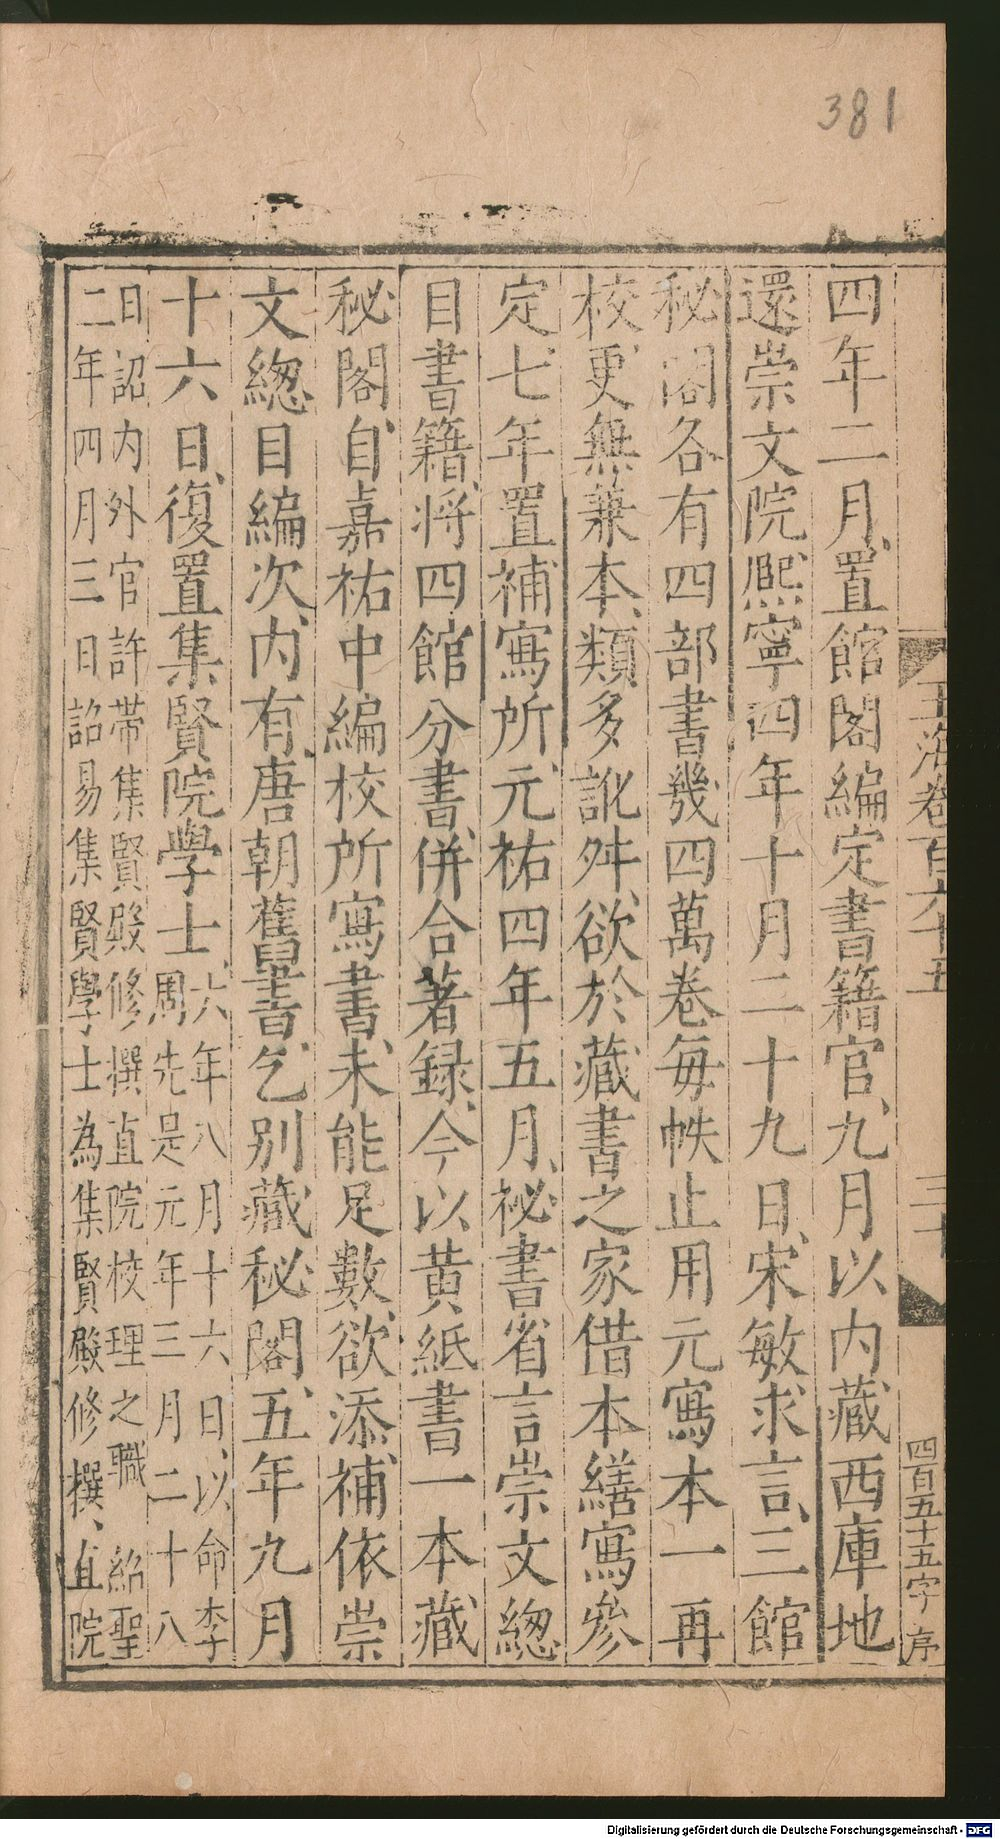 381
玉海卷百六十五
三十
四百五十五字 序
四年二月、置館閣編定書籍官、九月以內藏西庫地
還崇文院、熙寧四年十月二十九日、宋敏求言、三館
秘閣各有四部書幾四萬卷每帙止用元寫本一再
校、更無兼本、類多訛舛、欲於藏書之家借本繕寫參
定、七年置補寫所、元祐四年五月、祕書省言崇文緫
目書籍、將四館分書、併合著録、今以黄紙書一本藏
秘閣、自嘉祐中編校所寫書、未能足數、欲添補依崇
文緫目編次、内有唐朝舊書、乞别藏秘閣、五年九月
十六日、復置集賢院學士、六年八月十六日、以命李
周先是元年三月二十八
日詔内外官許帶集賢殿修撰直院校理之職 紹聖
二年四月三日詔易集賢學士為集賢殿修撰、直院
Digitalisierung gefördert durch die Deutsche Forschungsgemeinschaft - DFG